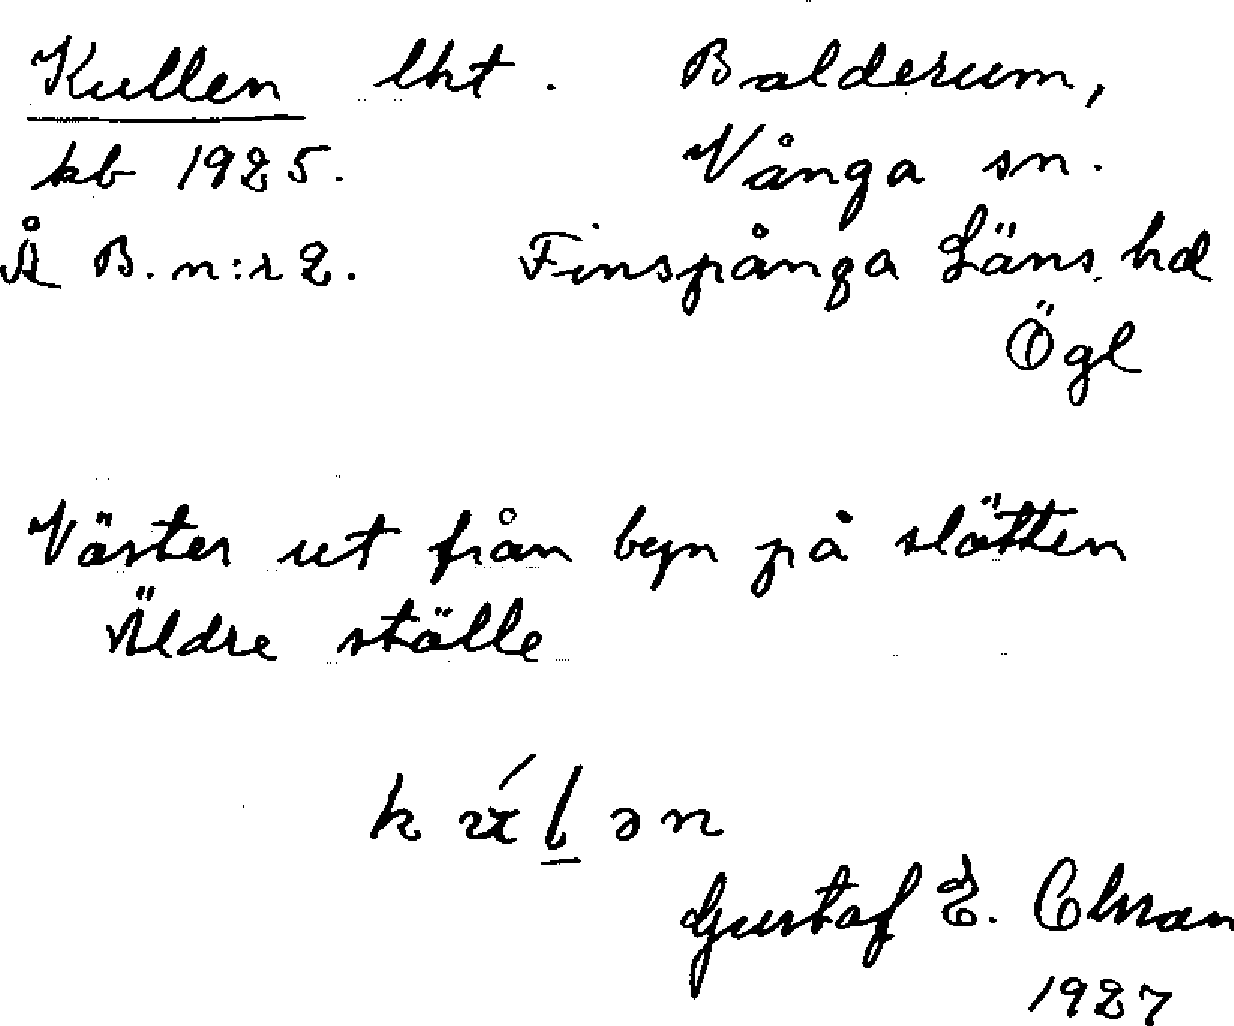 Kullen lht. Balderum,
kb 1925. Vånga sn.
Å B. n:r 2. Finspånga Läns hd
Ögl
Väster ut från byn på slätten
Äldre ställe
Gustaf E.
1927